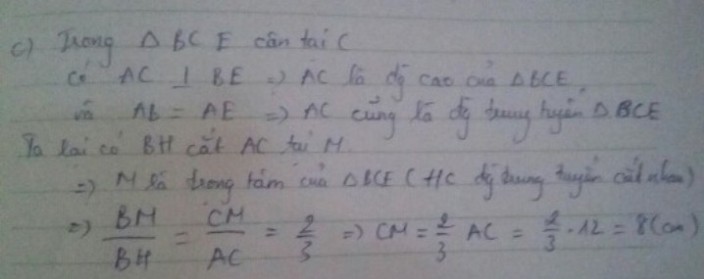 c) Trong Δ BCE cân tại C
có AC ⊥ BE => AC là đg cao của ΔBCE.
và AB = AE => AC cũng là đg trung tuyến Δ BCE
Ta lại có BH cắt AC tại M.
=> M là trọng tâm của ΔBCE ( đg trung tuyến cắt nhau)
=> BM/BH = CM/AC = 2/3 => CM = 2/3 AC = 2/3 . 12 = 8 (cm)